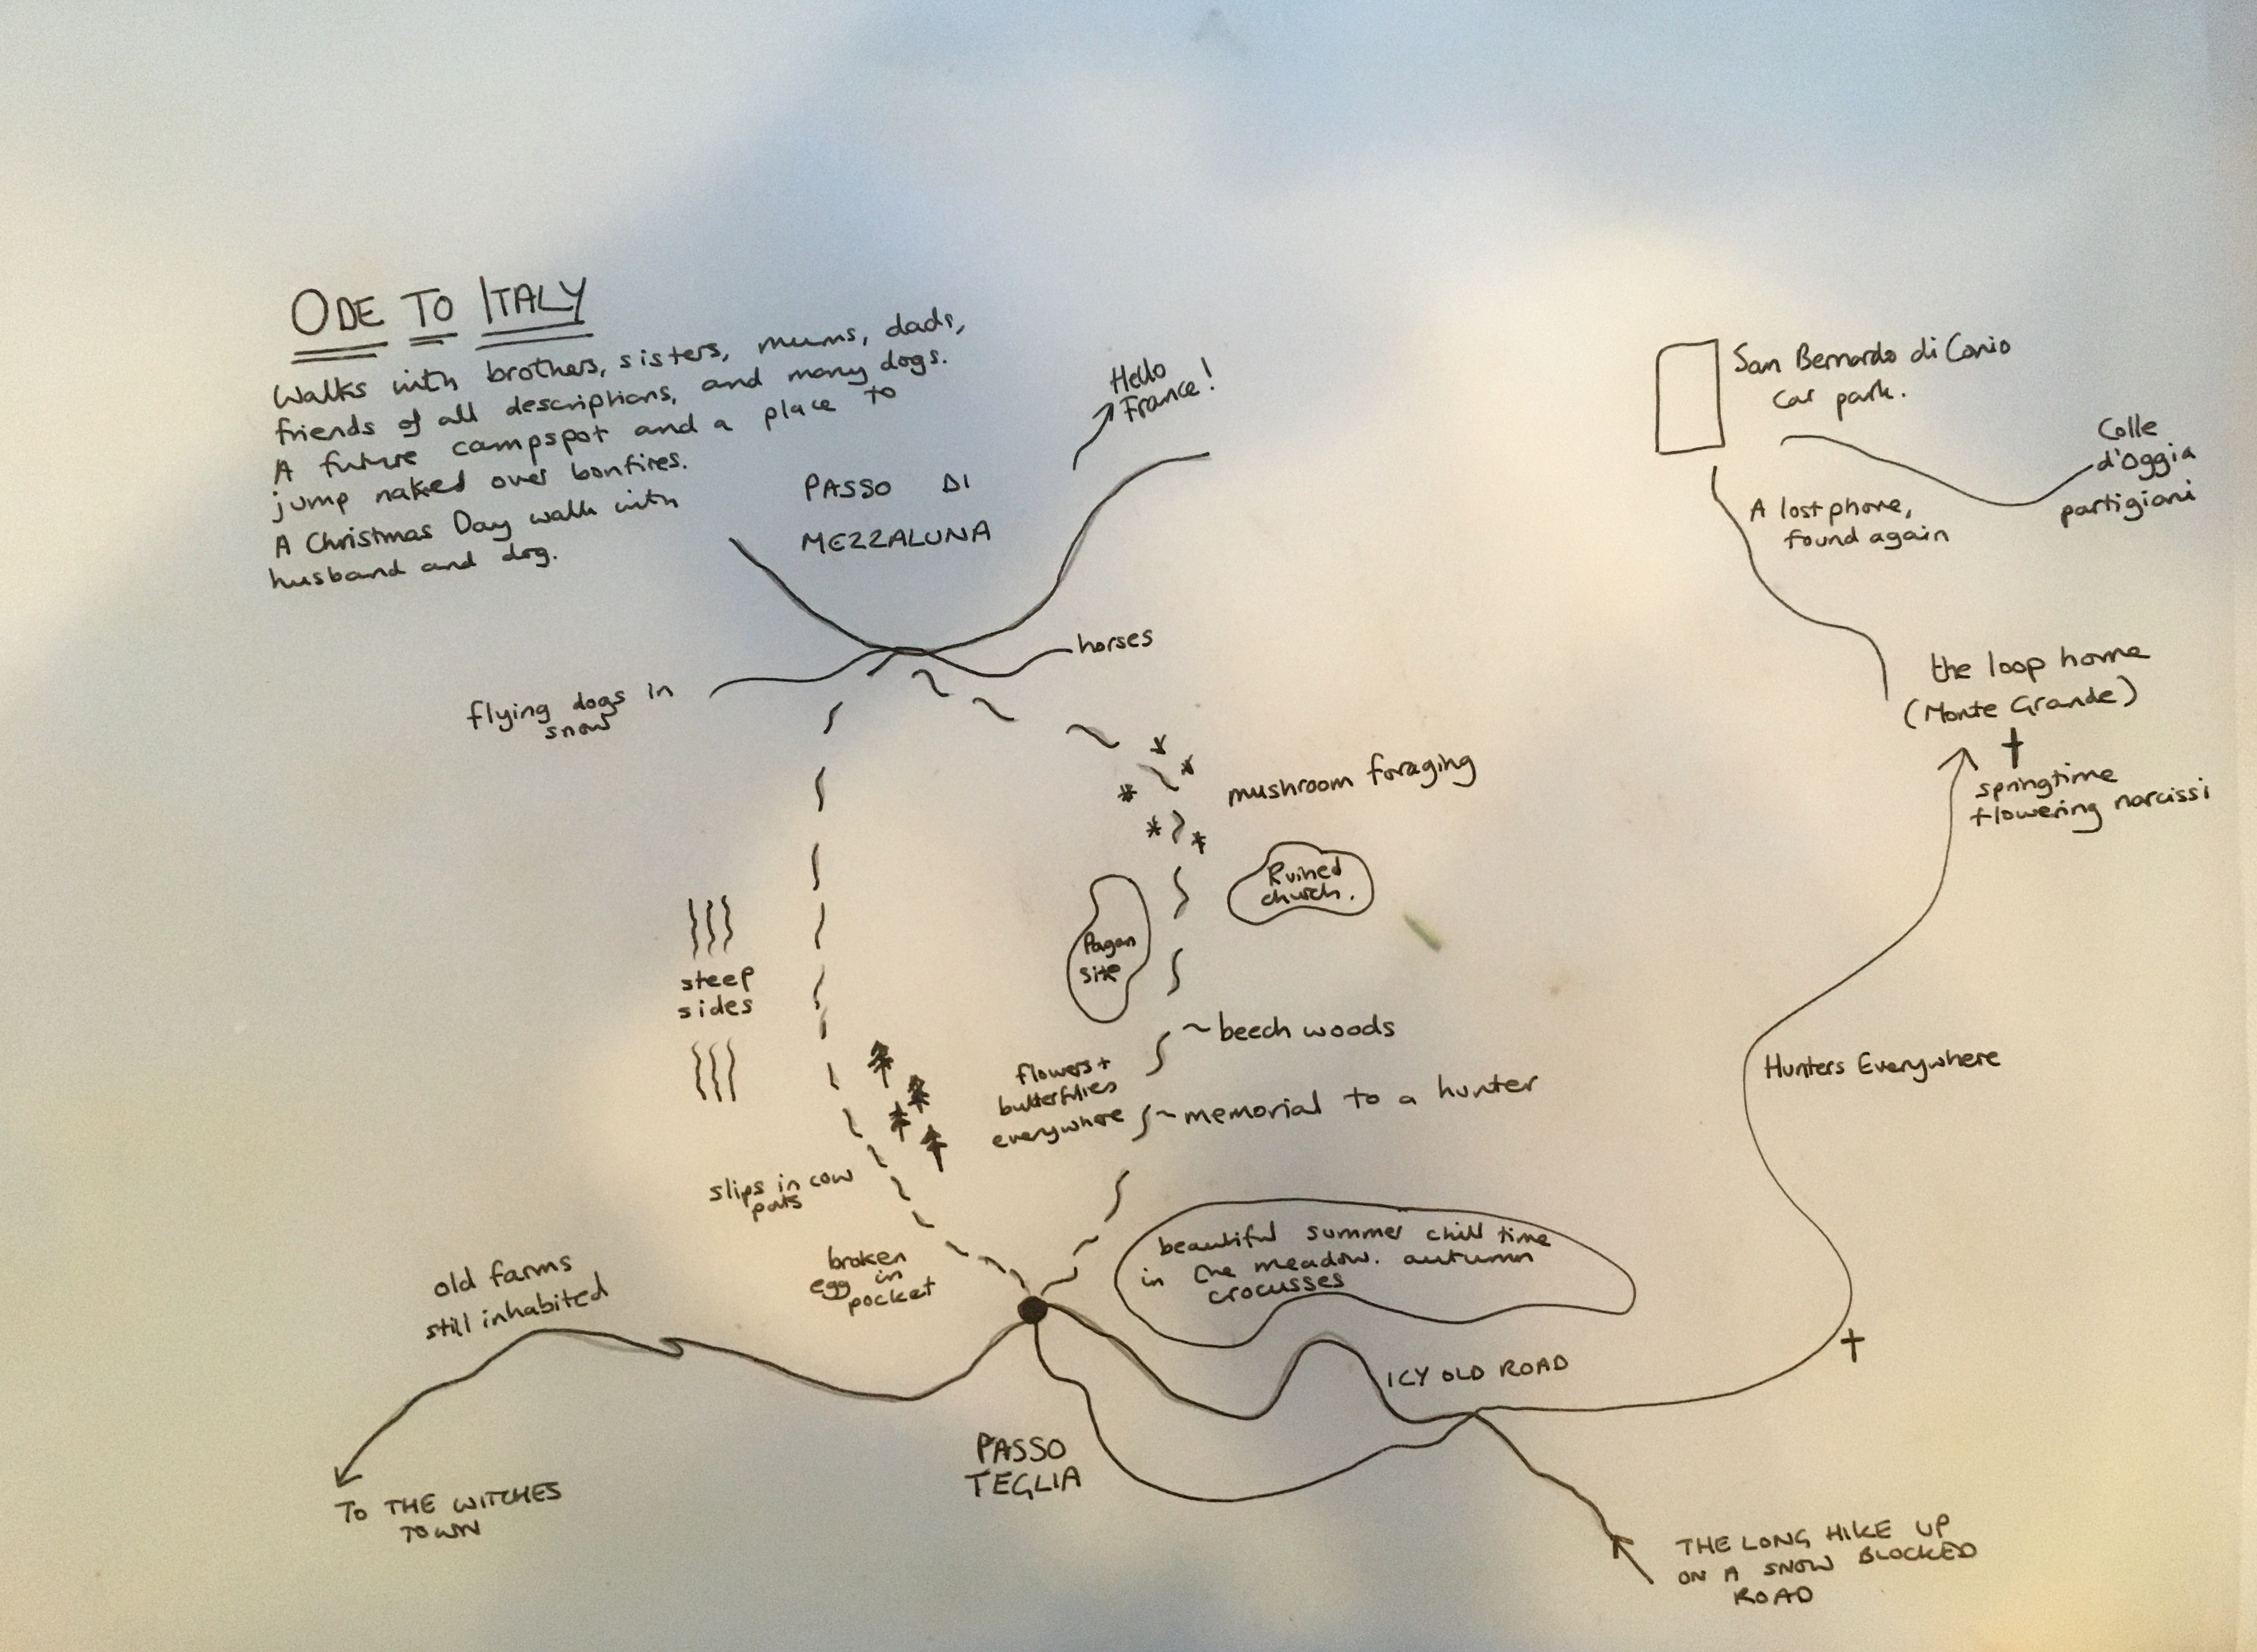 ODE TO ITALY
Walks with brothers, sisters, mums, dads,
friends of all descriptions, and many dogs.
A future campspot and a place to
jump naked over bonfires.
A Christmas Day walk with
husband and dog.
Hello
France!
PASSO DI
MEZZALUNA
San Bernardo di Conio
Car park.
Colle
d'Oggia
partigiani
A lost phone,
found again
horses
flying dogs in
snow
the loop home
(Monte Grande)
springtime
flowering narcissi
mushroom foraging
Ruined
church.
Pagan
site
steep
sides
beech woods
flowers +
butterflies
everywhere
memorial to a hunter
Hunters Everywhere
slips in cow
pats
broken
egg in
pocket
beautiful summer chill time
in the meadow. autumn
crocusses
old farms
still inhabited
ICY OLD ROAD
PASSO
TEGLIA
TO THE WITCHES
TOWN
THE LONG HIKE UP
ON A SNOW BLOCKED
ROAD